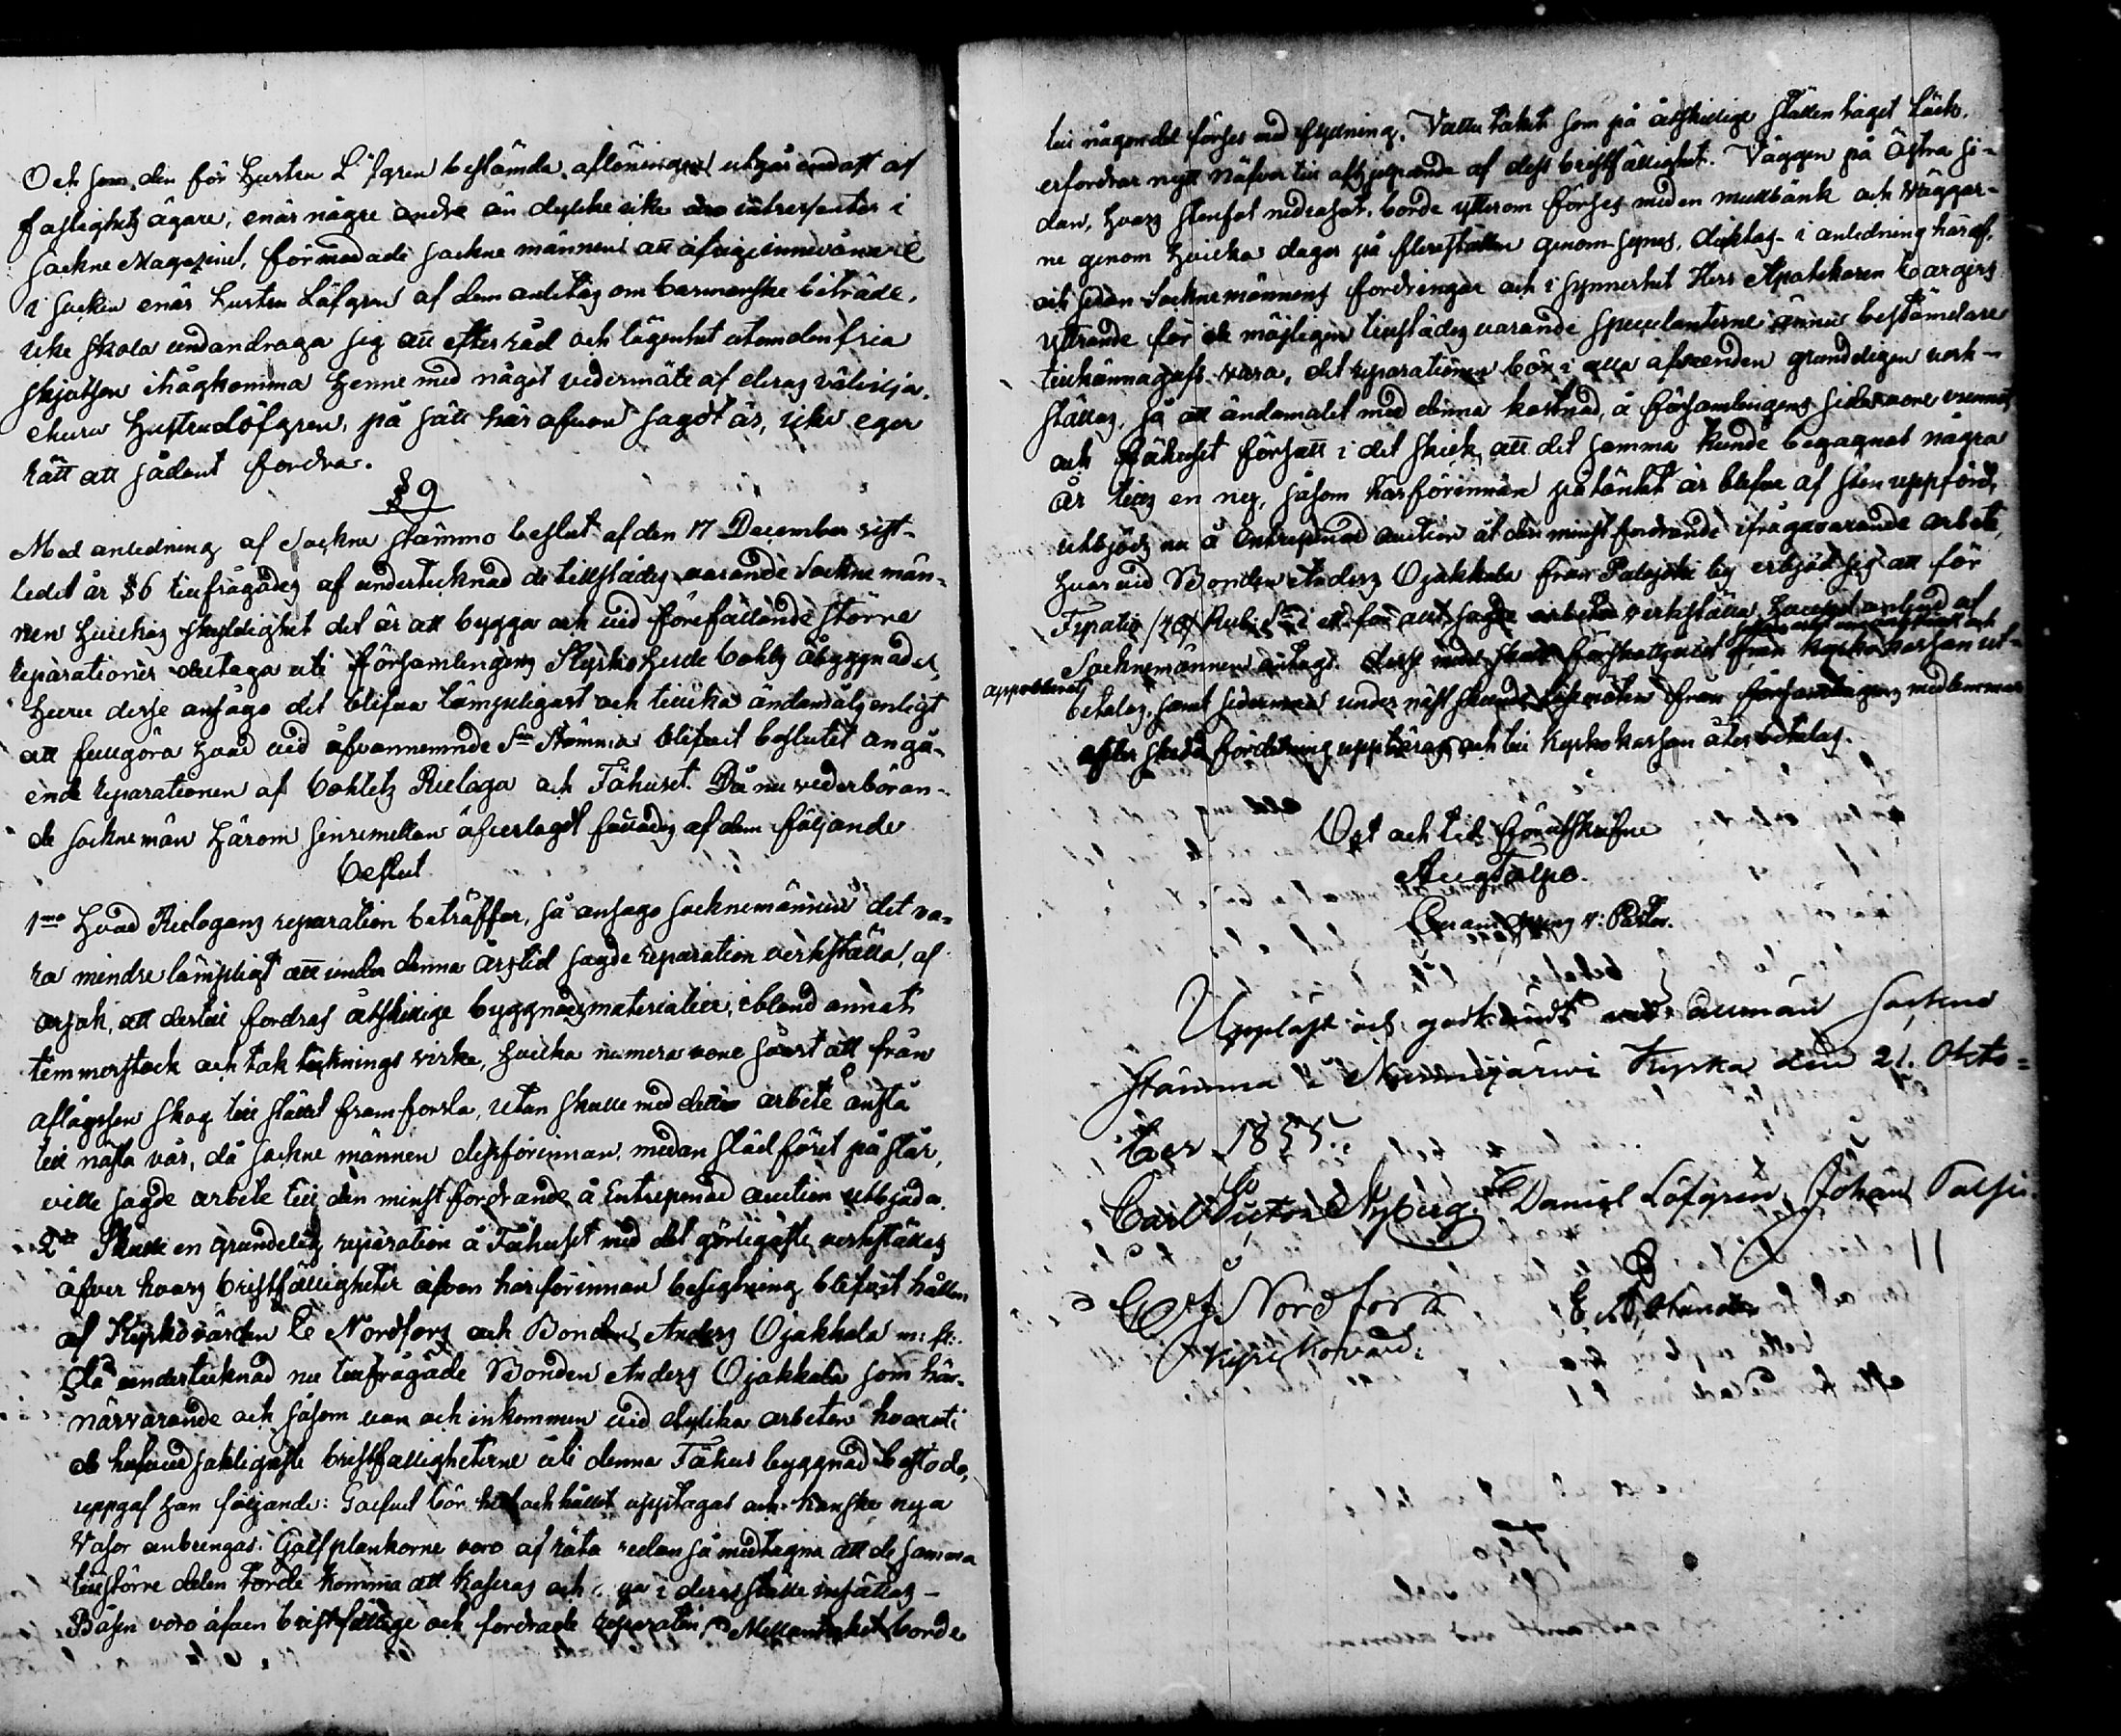 Och som den för Hustru Löfgren bestämda aflöningen utgår endast af
fastighets ägare, enär någre andre än dylike icke äro intressenter i
Sockne Magazinet, förmodade Sockne männen att öfrige innevånare
i Socken enär Hustru Löfgren af dem anlitas om barmorske biträde,
icke skola undandraga sig att efter råd och lägenhet utom den fria
skjutsen ihågkomma henne med något vedermäle af deras välvilja,
ehuru Hustru Löfgren, på sätt här ofvan sagdt är, icke eger
rätt att sådant fordra.
§ 9
Med anledning af Sockne Stämmo beslut af den 17 December sist-
ledet år § 6 tillfrågades af undertecknad de tillstädes varande Sockne män-
nen hvilkas skyldighet det är att bygga och vid förefallande större
reparationer deltaga uti församlingens Kyrkoherde bohls åbyggnader,
huru desse ansågo det blifva lämpeligast och tillika ändamålsenligt
att fullgöra hvad vid ofvannemnde Sne Stämma blifvit beslutet angå-
ende reparationen af bohlets Rielaga och Fähuset. Då nu vederböran-
de Sockne män härom sinsemellan öfverlagt fälldes af dem följande
beslut
1mo Hvad Rielogans reparation beträffar, så ansågo Socknemännen det va-
ra mindre lämpligt att under denna årstid sagde reparation verkställa, af
orsak, att dertill fordras åtskillige byggnadsmaterialier, ibland annat
timmerstock och tak täcknings virke, hvilka numera vore svårt att från
aflägsen skog till stället framforsla, utan skulle med detta arbete anstå
till nästa vår, då Sockne männen dessförinnan, medan slädföret påstår,
ville sagde arbete till den minstfordrande å Entreprenad auction utbjuda.
2do Skulle en grundelig reparation å Fähuset med det görligaste verkställas
öfver hvars bristfälligheter äfven härförinnan besigtning blifvit hållen
af Kyrkovärden C Nordfors och Bonden Anders Ojakkala m: fl:
Då undertecknad nu tillfrågade Bonden Anders Ojakkala som här-
närvarande och såsom van och inkommen vid dylika arbeten hvaruti
de hufvudsakligaste bristfälligheterne uti denna Fähus byggnad bestodo,
uppgaf han följande: Golfvet bör helt och hållet upptagas och kanske nya
Vasor anbringas. Golfplankorne voro af röta redan så medtagna att de samma
till större delen torde komma att kasseras och nya i deras ställe insättas –
Båsen voro äfven bristfällige och fordrade reparation, Mellantaket borde
till någon del förses med fyllning. Vattu taket som på åtskillige ställen läckt,
erfordrar nytt näfver till afhjelpande af dess bristfällighet. Väggen på Östra si-
dan, hvars stenfot nedrasat, borde ytterom förses med en mullbänk och väggar-
ne genom hvilka dager på flere ställen genomsynes, diktas. I anledning häraf,
och sedan Socknemännens fordringar och i synnerhet Herr Apothekaren
yttrande för de möjligen tillstädes varande speculanterne ännu bestämdare
tillkännagafs vara, det reparationen bör i alla afseenden grundeligen verk-
ställas, så att ändamålet med denna kostnad, å församlingens sida vore vunnet
och Fähuset försatt i det skick att det samma kunde begagnas några
år tills en ny, såsom härförinnan påtänkt är blefve af sten uppförd,
utbjöds nu å Entreprenad auction åt den minst fordrande ifrågavarande arbete,
hvarvid Bonden Anders Ojakkala från Palojoki by erbjöd sig att för
Fyratio /40/ Rub: Smt sagde arbete verkställa, hvilket anbud af
Socknemännen antogs. Desse medel skall förskottsvis från Kyrkokassan ut-
approberat
betalas, samt sedermera under från församlingens medlemmar
efter skedd fördelning uppbäras och till Kyrkokassan återbetalas.
Ort och tid förutskrifne
Aug Talpo.
v: Pastor.
Uppläst och godkändt vid allmän Sockne
Stämma i Nurmijärwi Kyrka den 21. Okto=
ber 1855.
Carl Victor Nyberg. Daniel Löfgren Johan
C Nordfors
Kyrkovärd.